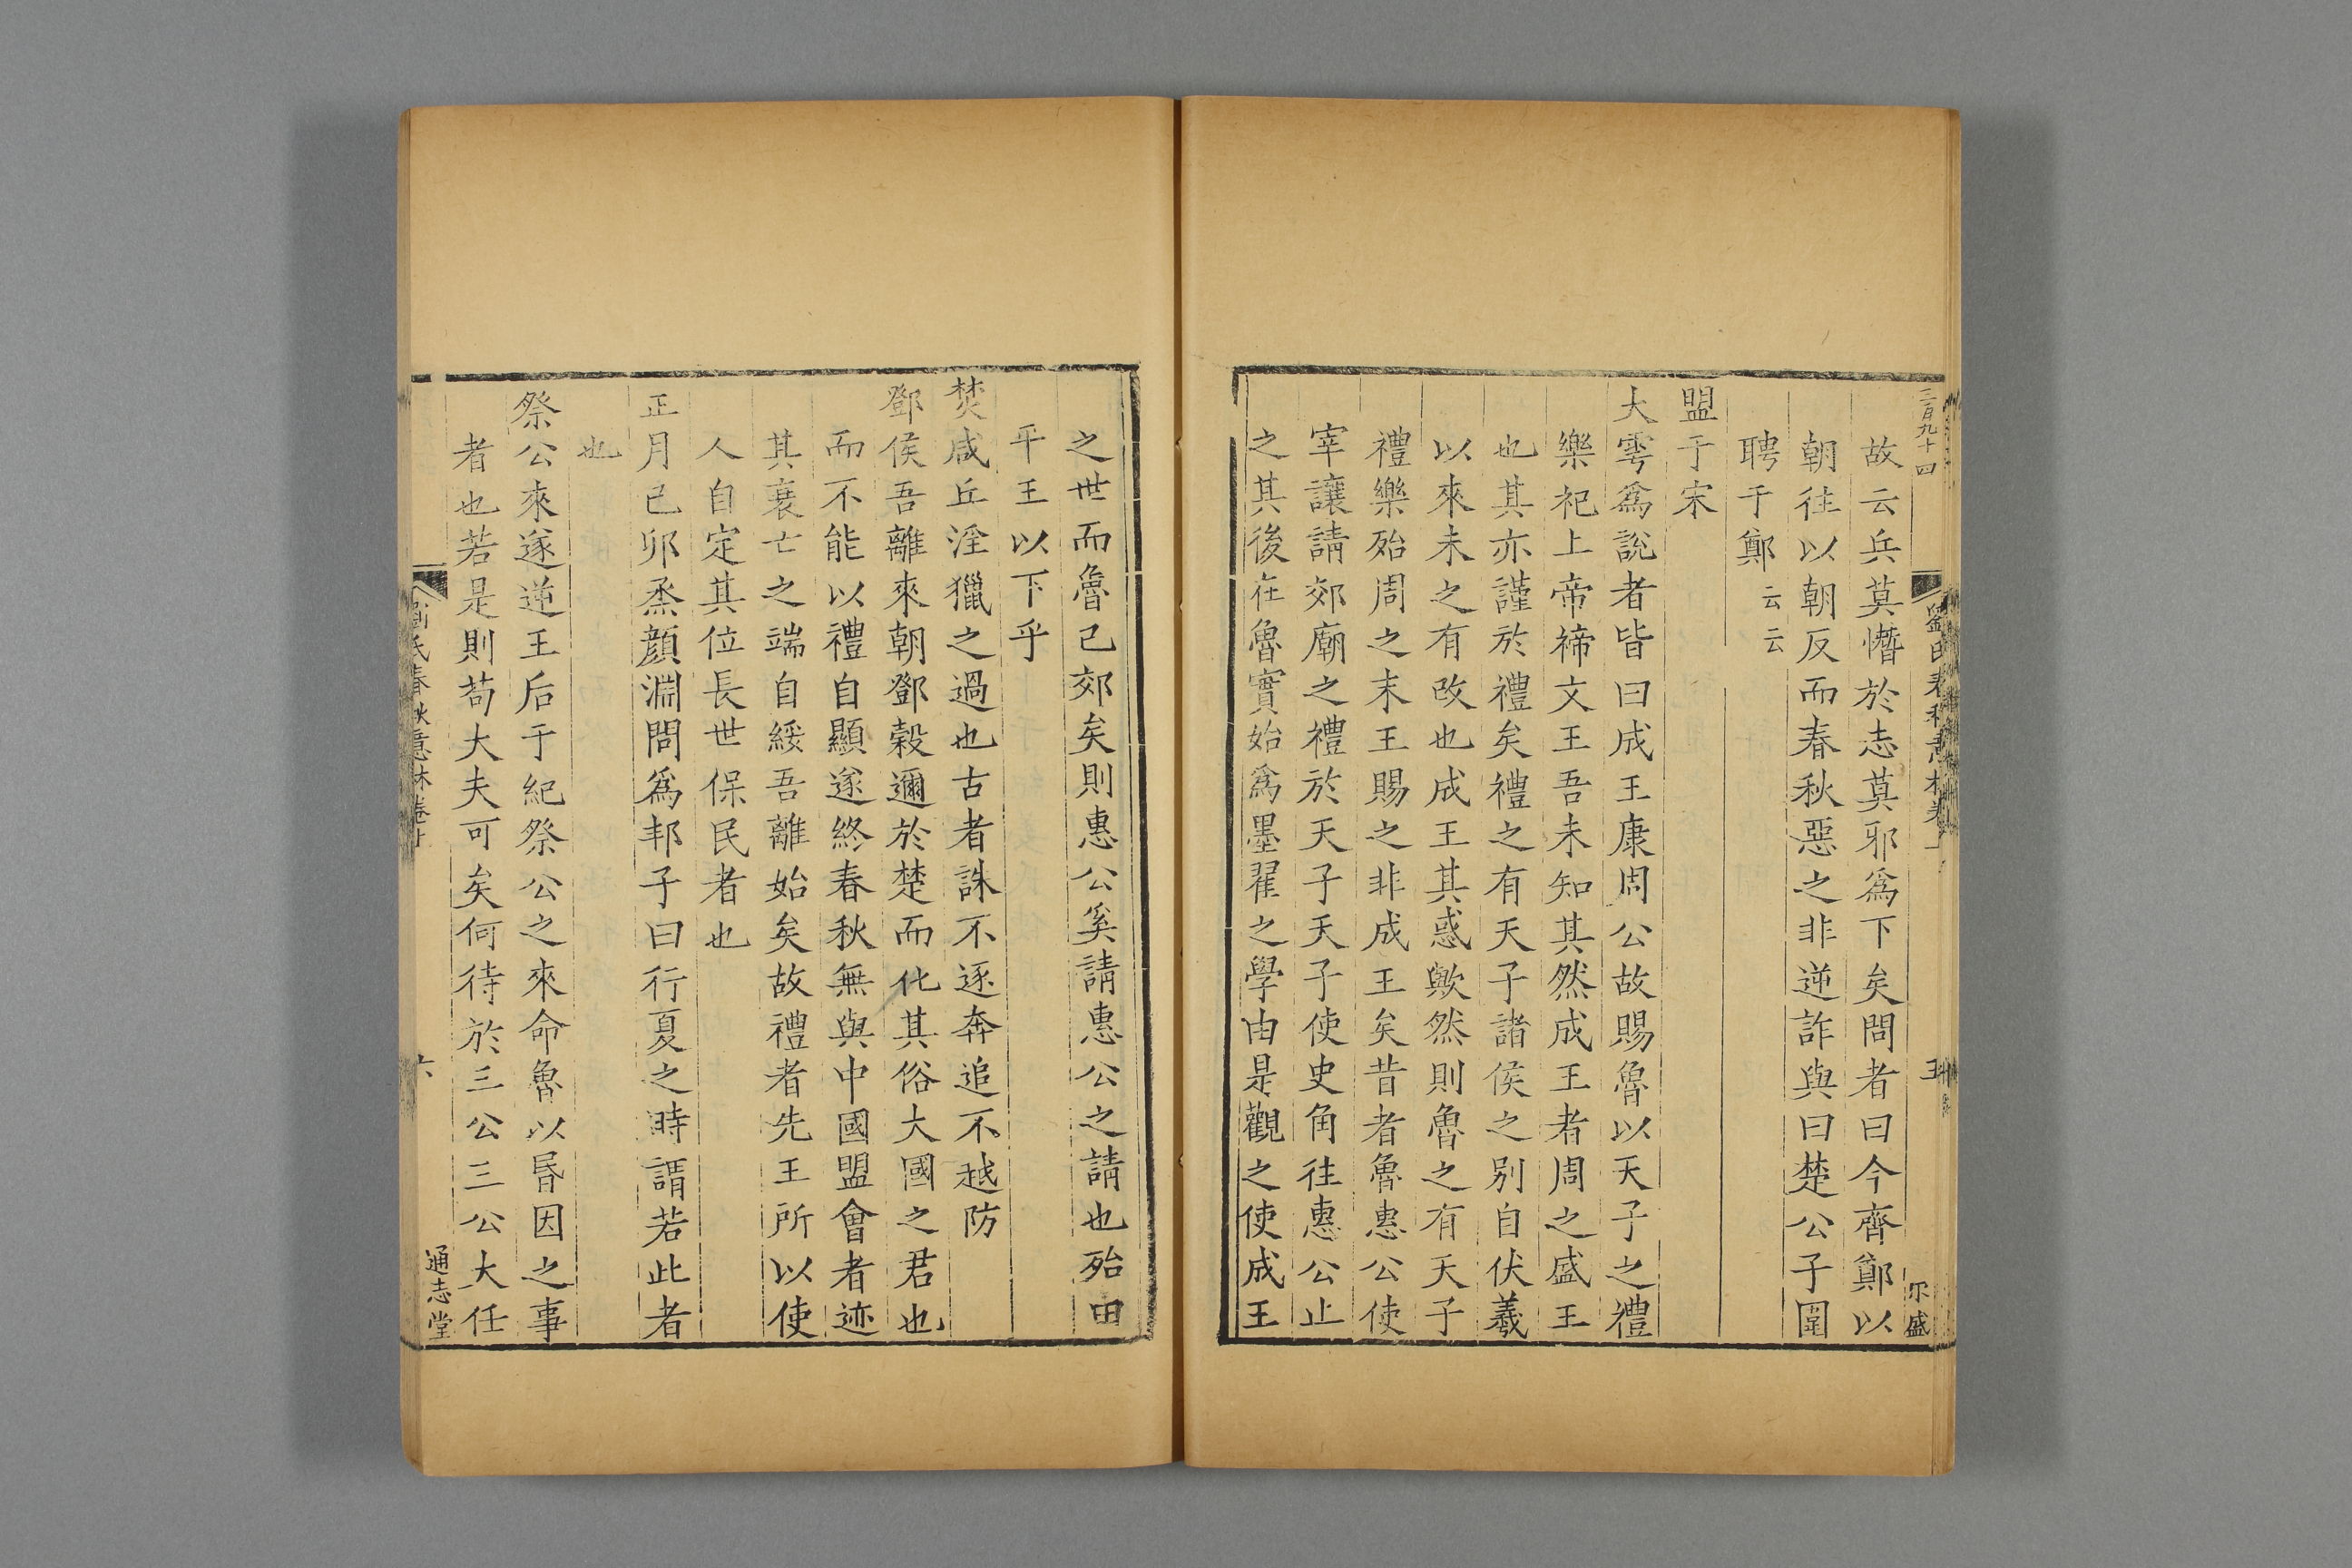 三百九十四
故云兵莫憯於志莫邪爲下矣問者曰今齊鄭以
朝往以朝反而春秋惡之非逆詐與曰楚公子圍
聘于鄭云云
盟于宋
大雩爲說者皆曰成王康周公故賜魯以天子之禮
樂祀上帝禘文王吾未知其然成王者周之盛王
也其亦謹於禮矣禮之有天子諸侯之别自伏羲
以來未之有改也成王其惑歟然則魯之有天子
禮樂殆周之末王賜之非成王矣昔者魯惠公使
宰讓請郊廟之禮於天子天子使史角往惠公止
之其後在魯實始爲墨翟之學由是觀之使成王
之世而魯已郊矣則惠公奚請惠公之請也殆由
平王以下乎
焚咸丘淫獵之過也古者誅不逐奔追不越防
鄧侯吾離來朝鄧穀邇於楚而化其俗大國之君也
而不能以禮自顯遂終春秋無與中國盟會者迹
其衰亡之端自綏吾離始矣故禮者先王所以使
人自定其位長世保民者也
正月己卯烝顔淵問爲邦子曰行夏之時謂若此者
也
祭公來遂逆王后于紀祭公之來命魯以昏因之事
者也若是則苟大夫可矣何待於三公三公大任
劉氏春秋意林卷上
六
通志堂